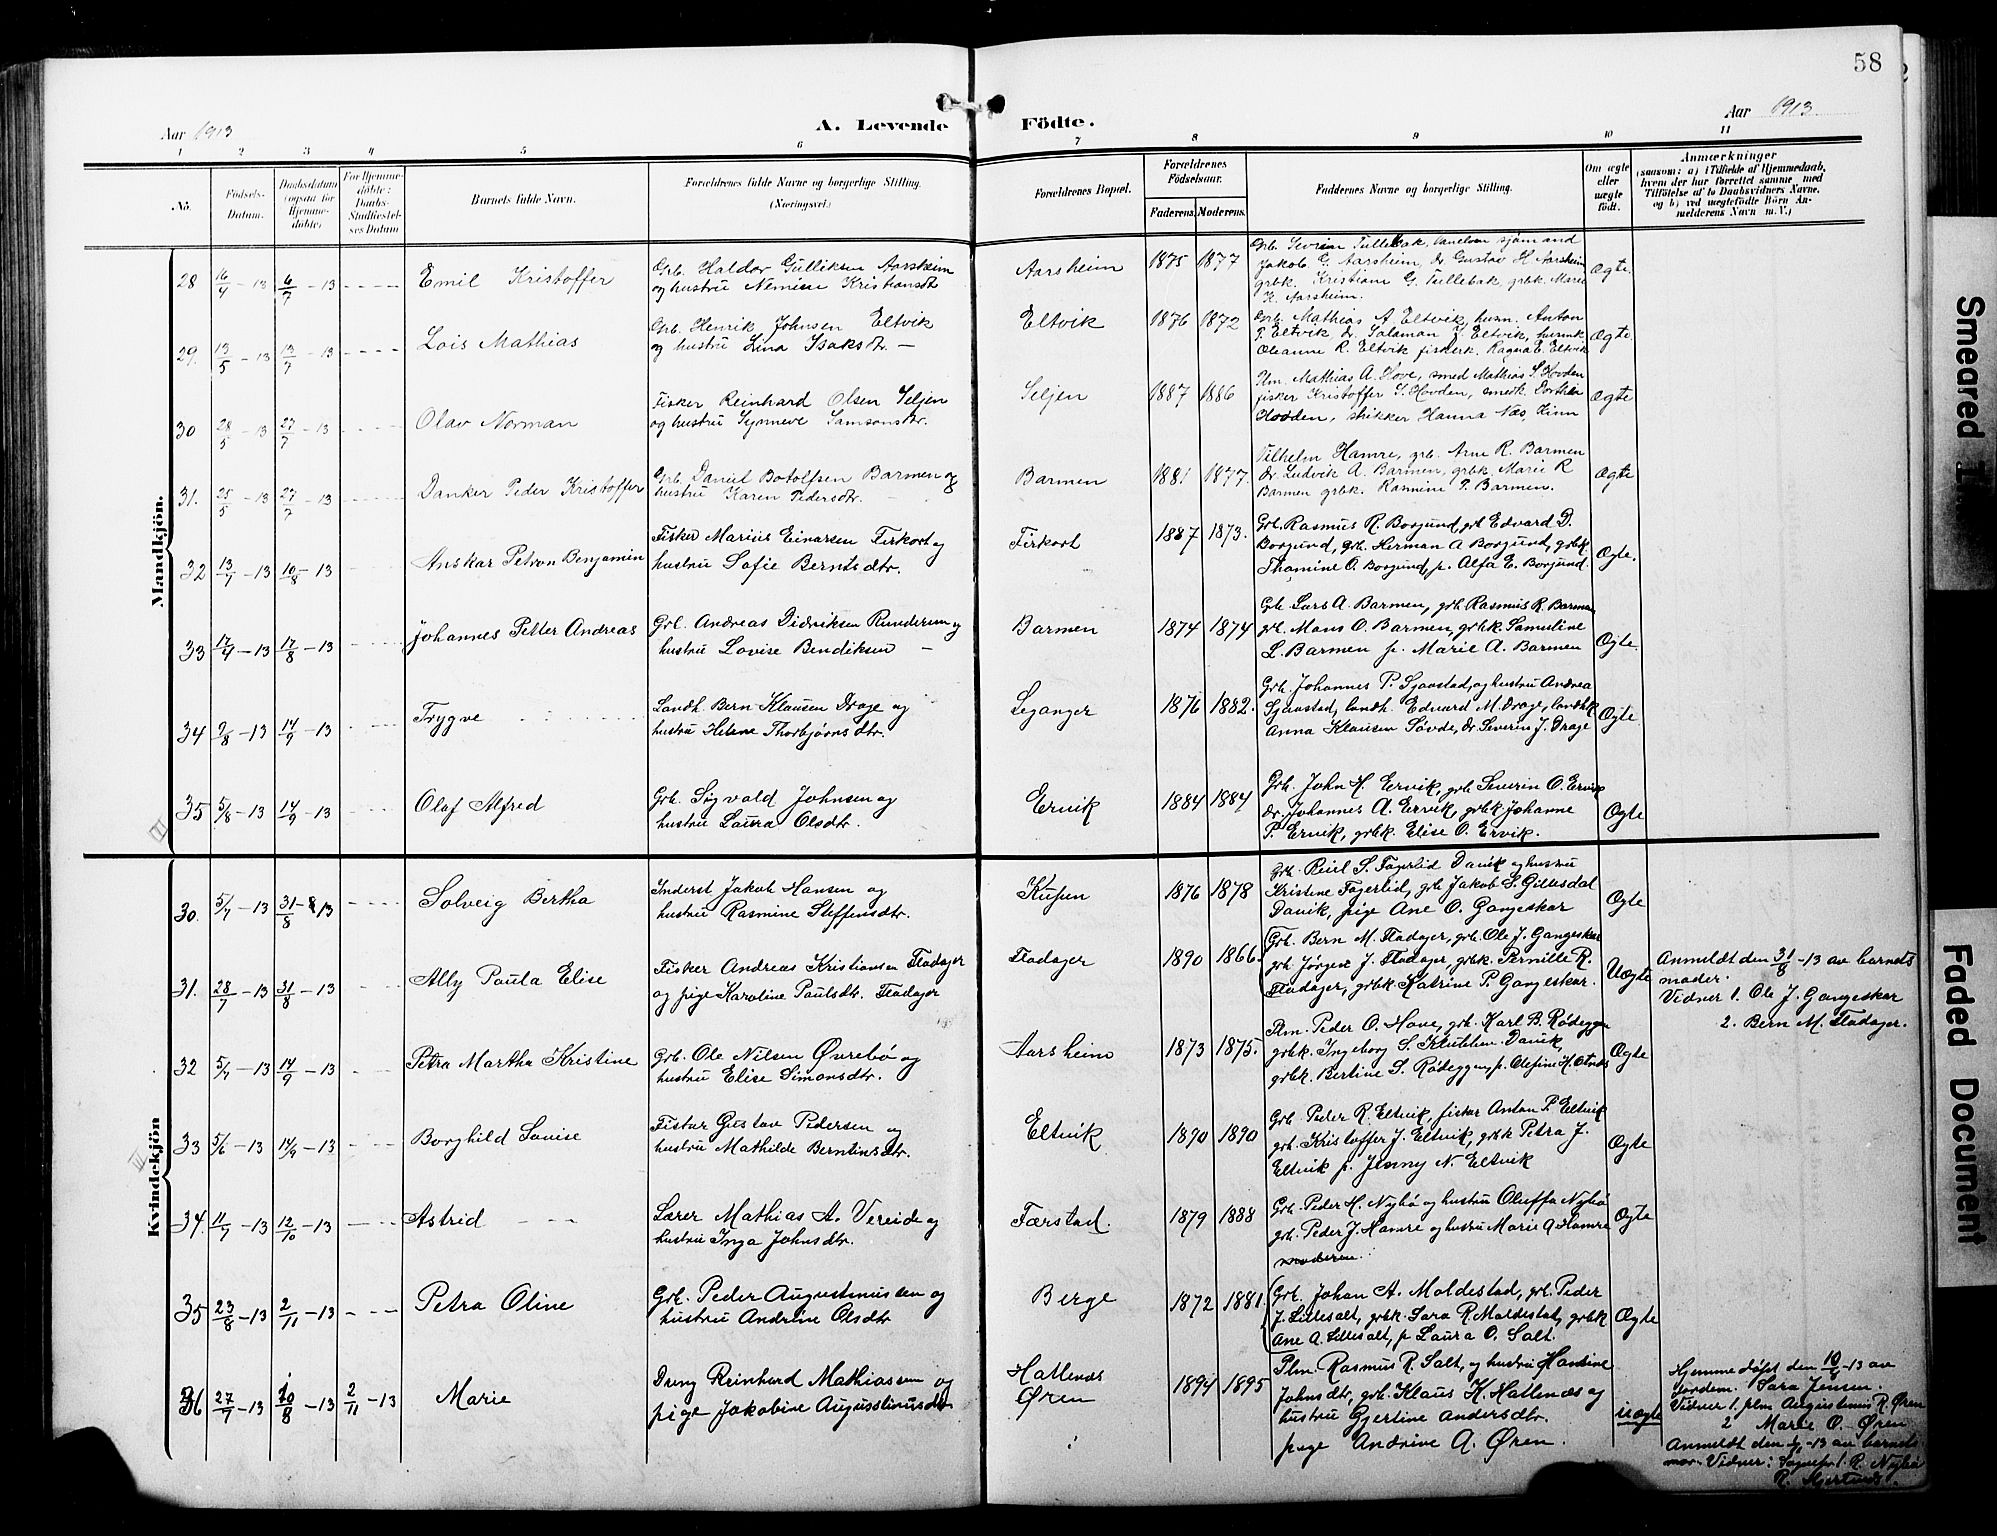 58
Aar 1913
A. Levende Födte.
Aar 1913.
1 2 3 4 5 6 7 8 9 10 11
No.
Födsels-Datum.
Daabsdatum (ogsaa for Hjemme-döbte)
For Hjemme-döbte: Daabs-Stadfæstel-ses Datum
Barnets fulde Navn.
Forældrenes fulde Navne og borgerlige Stilling.
(Næringsvei.)
Forældrenes Bopæl.
Forældrenes Födselsaar.
Faderens. Moderens.
Faddernes Navne og borgerlige Stilling.
Om ægte eller uægte födt.
Anmærkninger
(saasom: a) i Tilfælde af Hjemmedaab,
hvem der har forrettet samme med
Tilföielse af to Daabsvidners Navne.
og b) ved uægtefödte Börn An-
melderens Navn m. V.)
Mandkjön.
28 16/4 - 13 6/7 - 13 Emil Kristoffer
Grb. Haldor Gulliksen Aarsheim
og hustru Nemine Kristiansdtr
Aarsheim 1875 1877
Jakob G. Aarsheim, dr Gustav H. Aarsheim
grbk. Kristiane G. Tullebak, grbk. Marie
K. Aarsheim.
Ægte.
29. 13/5 - 13 13/7 - 13 Lois Mathias
Grb. Henrik Johnsen Eltvik
og hustru Lina Isaksdtr. -
Eltvik 1876 1872
Grb. Mathias A. Eltvik, husm. Anton
P. Eltvik dr. Salaman J. Eltvik, husmk
Oleanne R. Eltvik fiskerk. Ragna E. Eltvik
Ægte.
30 28/5 - 13 27/7 - 13 Olav Norman
Fisker Reinhard Olsen Seljen
og hustru Synneve Samsonsdtr.
Seljen 1887 1886
Plm. Mathias A. Hove, smed Mathias S. Hovden
fisker Kristoffer S. Hovden, smedk. Dorthea
Hovden, strikker Hanna Næs,
Ægte
31. 25/5 - 13 27/7 - 13 Danker Peder Kristoffer
Grb. Daniel Botolfsen Barmen og
hustru Karen Pedersdtr.
Barmen 1881 1877.
Vilhelm Hamre, grb. Arne R. Barmen
dr. Ludvik A. Barmen, grbk. Marie R
Barmen grbk. Rasmine P. Barmen.
Ægte
32 13/7 - 13 10/8 - 13 Anskar Petron Benjamin
Fisker Marius Einarsen Firkort og
hustru Sofie Berntsdtr.
Firkort 1887 1873.
Grb. Rasmus R. Borgund, grb Edvard D.
Borgund, grb. Herman A Borgund, grbk.
Thomine O. Borgund, p. Alfa E. Borgund.
Ægte.
33 17/4 - 13 17/8 - 13 Johannes Petter Andreas
Grb. Andreas Didriksen Runderum og
hustru Lovise Bendiksen -
Barmen 1874 1874
Grb. Lars A. Barmen, grb. Rasmus R. Barmen
grb. Mons O. Barmen, grbk. Samuline
L. Barmen p. Marie A. Barmen
Ægte.
34 2/8 - 13 14/9 - 13 Trygve
Landh. Bern Klausen Drage og
hustru Helene Thorbjørnsdtr.
Leganger 1876 1882.
Grb. Johannes P. Sjaastad, og hustru Andrea
Sjaastad, landh. Edvard M. Drage, landhk
Anna Klausen Søvde, dr. Severin J. Drage
Ægte
35 5/8 - 13 14/9 - 13 Olaf Alfred
Grb. Sigvald Johnsen og
hustru Laura Olsdtr.
Ervik 1884 1884
Grb. John H. Ervik, grb Severin O. Ervik
dr. Johannes A. Ervik, grbk. Johanne
P. Ervik, grbk. Elise O. Ervik.
Ægte
Kvindekjön
30. 5/7 - 13 31/8 - 13 Solveig Bertha
Inderst Jakob Hansen og
hustru Rasmine Steffensdtr.
1876 1878
S. Fagerlid Davik og hustru
Kristine Fagerlid, grb Jakob S. Gillesdal
Davik, pige Ane O. Gangeskar
Ægte
31. 28/7 - 13 31/8 - 13 Ally Paula Elise
Fisker Andreas Kristiansen Fladager
og pige Karoline Paulsdtr. Fladager
Fladager 1890 1866.
Grb. Bern M. Fladager, grb. Ole J. Gangeskar
grb Jørgen J. Fladager, grbk. Pernille R.
Fladager, grbk. Katrine P. Gangeskar.
Uægte
Anmeldt den 31/8 - 13 av barnets
moder.
Vidner 1. Ole J. Gangeskar
2. Bern M. Fladager.
32 5/7 - 13 14/9 - 13 Petra Martha Kristine
Grb. Ole Nilsen Øvrebø og
hustru Elise Simonsdtr.
Aarsheim 1873 1875.
Plm. Peder O. Hove, grb. Karl B. Rødeggen
grbk. Ingeborg S. Davik,
grbk. Bertine S. Rødeggen, p. Olefine H. Otnes
Ægte
33 5/6 - 13 14/9 - 13 Borghild Lovise
Fisker Gustav Pedersen og
hustru Mathilde Berntinsdtr.
Eltvik 1890 1890
Grb. Peder R. Eltvik, fisker Anton P. Eltvik
grb. Kristoffer J. Eltvik, grbk Petra J.
Eltvik p. Jenny N. Eltvik
Ægte
34. 11/7 - 13 12/10 - 13 Astrid
Lærer Mathias A. Vereide og
hustru Inga Johnsdtr.
Færstad. 1879 1888
Grb. Peder H. Nybø og hustru Oluffa Nybø
grb. Peder J. Hamre og hustru Marie A. Hamre
moderen.
Ægte
35 23/8 - 13 2/11 - 13 Petra Oline
Grb. Peder Augustinussen og
hustru Andrine Olsdtr
Berge 1872 1881.
Grb. Johan A. Moldestad, grb. Peder
J. Lillesalt, grbk. Sara R. Moldestad, grbk
Ane A. Lillesalt, p Laura O. Salt.
Ægte
36 27/7 - 13 10/8 - 13 2/11 - 13 Marie
Dreng Reinhard Mathiassen og
pige Jakobine Augustinusdtr
Hatlenæs
Øren 1894 1895
Plm. Rasmus R. Salt, og hustru Hansine
Johnsdtr, grb. Klaus K. Hatlenæs og
hustru Gjertine Andersdtr.
pige Andrine A. Øren.
uægte
Hjemmedøpt den 10/8 - 13 av
Jordem. Sara Jensen.
Vidner 1. plm Augustinus R. Øren
2 Marie O. Øren
Anmeldt den - 13 av barnets
mor. Vidner: 1. R. Nybø
Smeared
Faded Document